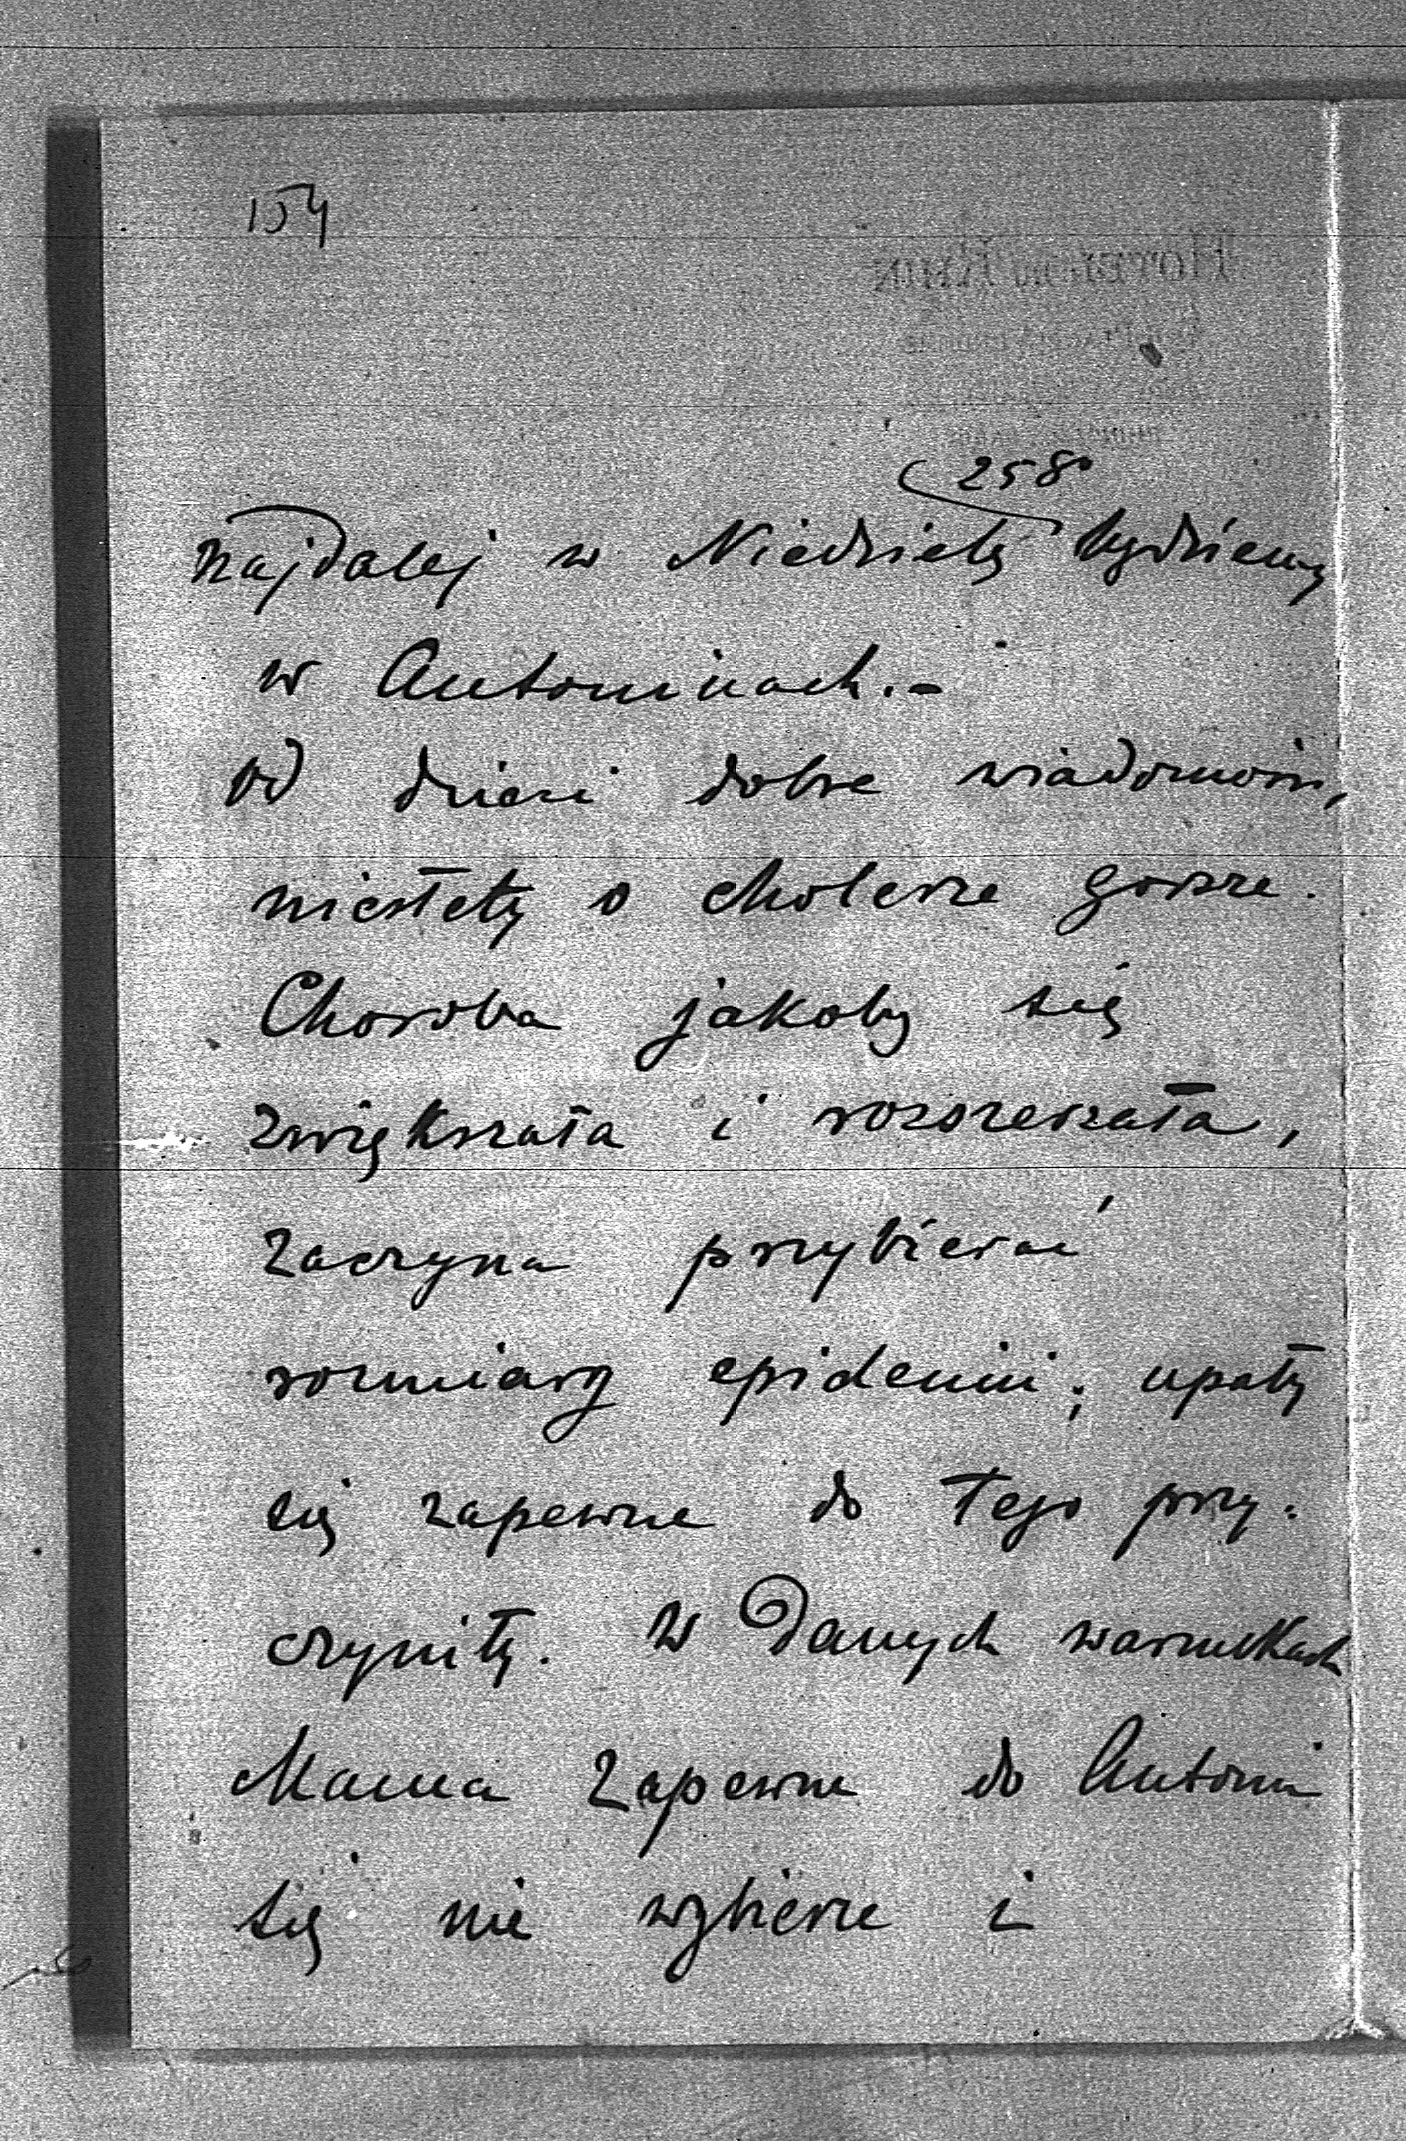 154
HOTEL DU RHIN
258
najdalej w Niedzielę będziemy
w Antoninach.-
Od dzieci dobre wiadomości,
niestety o cholerze gorsze.
Choroba jakoby się
zwiększała i rozszerzała,
zaczyna przybierać
rozmiary epidemii; upały
się zapewne do tego przy-
czyniły. W danych warunkach
Mama zapewne do Antonin
się nie wybierze i